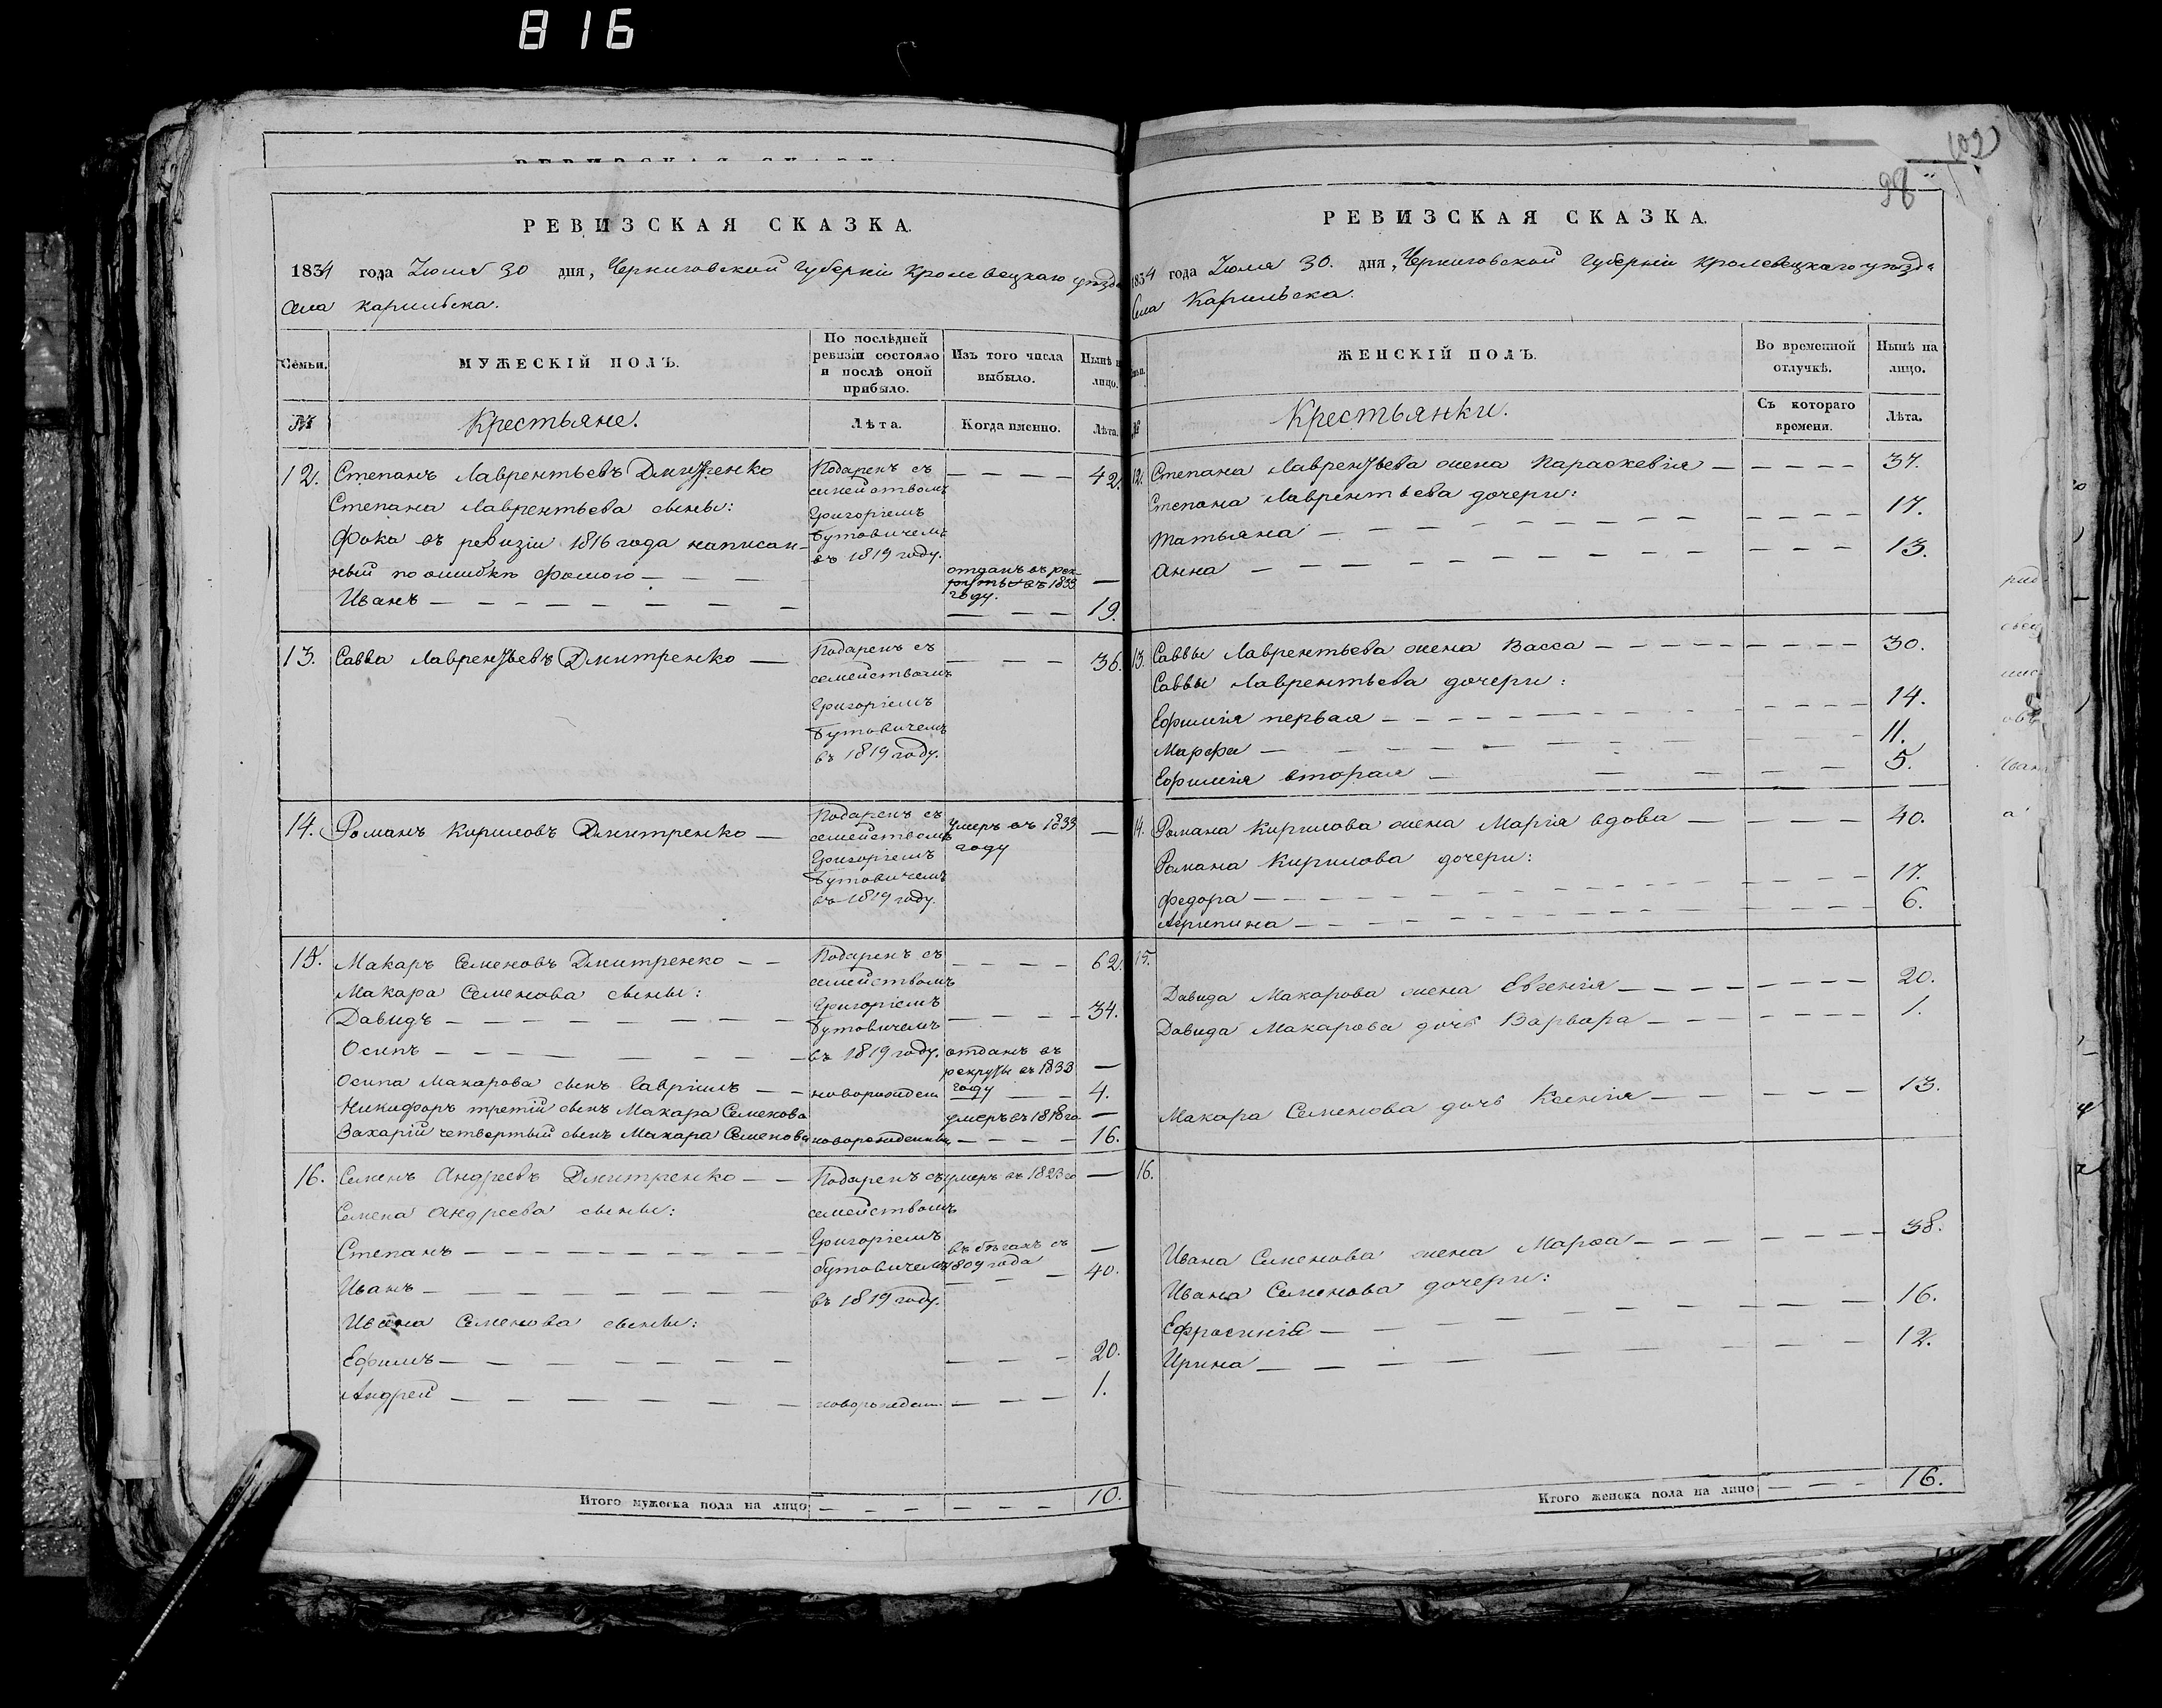 816
РЕВИЗСКАЯ СКАЗКА.
1834 года Июля 30 дня, Черниговской Губерніи Кролевецкаго уѣзда
Села Карильска.
Семьи. МУЖЕСКІЙ ПОЛЪ. По послѣдней ревизіи состояло и послѣ оной прибыло. Изъ того числа выбыло. Нынѣ на лицо.
№ Крестьяне. Лѣта. Когда именно. Лѣта.
12. Степанъ Лаврентьевъ Дмитренко Подаренъ съ — — — — 42.
Степана Лаврентьева сыны: семействомъ
Григоріемъ
Фока въ ревизіи 1816 года написан- Бутовичемъ
въ 1819 году.
ный по ошибкѣ Фомою — — — отданъ въ рек-
руты въ 1833 —
году.
Иванъ — — — — — — — — — — 19.
13. Савва Лаврентьевъ Дмитренко — Подаренъ съ — — — 36.
семействомъ
Григоріемъ
Бутовичемъ
въ 1819 году.
14. Романъ Кириловъ Дмитренко — Подаренъ съ умеръ въ 1833 —
семействомъ году
Григоріемъ
Бутовичемъ
въ 1819 году.
15. Макаръ Семеновъ Дмитренко — — Подаренъ съ — — — — 62.
Макара Семенова сыны: семействомъ
Григоріемъ
Давидъ — — — — — — — Бутовичемъ — — — — 34.
Осипъ — — — — — — — въ 1819 году. отданъ въ
рекруты въ 1833 —
году
Осипа Макарова сынъ Гавріилъ — — новорожден — — 4.
Никифоръ третій сынъ Макара Семенова умеръ въ 1818 го —
Захарій четвертый сынъ Макара Семенова новорожденны — — — — 16.
16. Семенъ Андреевъ Дмитренко — — Подаренъ съ умеръ въ 1823 го —
Семена Андреева сыны: семействомъ
Степанъ — — — — — — — Григоріемъ въ бѣгахъ съ —
Бутовичемъ 1809 года
Иванъ — — — — — — — — — — 40.
въ 1819 году.
Ивана Семенова сыны:
Ефимъ — — — — — — — — — — 20.
Андрей — — — — — — новорожден. — — — — 1.
Итого мужеска пола на лицо — — — — — — — 10.
102
98
РЕВИЗСКАЯ СКАЗКА.
1834 года Июля 30. дня, Черниговской Губерніи Кролевецкаго уѣзда
Села Карильска.
ЖЕНСКІЙ ПОЛЪ. Во временной отлучкѣ. Нынѣ на лицо.
№ Крестьянки. Съ котораго времени. Лѣта.
12. Степана Лаврентьева жена Параскевія — — — — — 37.
Степана Лаврентьева дочери:
Татьяна — — — — — — — — — — — — 17.
Анна — — — — — — — — — — — — 13.
13. Саввы Лаврентьева жена Васса — — — — — — — — — 30.
Саввы Лаврентьева дочери:
Ефимія первая — — — — — — — — — — — 14.
Марфа — — — — — — — — — — — 11.
Ефимія вторая — — — — — — 5.
14. Романа Кирилова жена Марія вдова — — — — — 40.
Романа Кирилова дочери:
Федора — — — — — — — — — — — — — 17.
Агрипина — — — — — — — — — — — — 6.
15.
Давида Макарова жена Евгенія — — — — — — — — 20.
Давида Макарова дочь Варвара — — — — — — — — 1.
Макара Семенова дочь Ксенія — — — — — — 13.
16.
Ивана Семенова жена Марфа — — — — — — — — 38.
Ивана Семенова дочери:
Ефросинія — — — — — — — — — 16.
Ирина — — — — — — — — 12.
Итого женска пола на лицо — — — — 16.